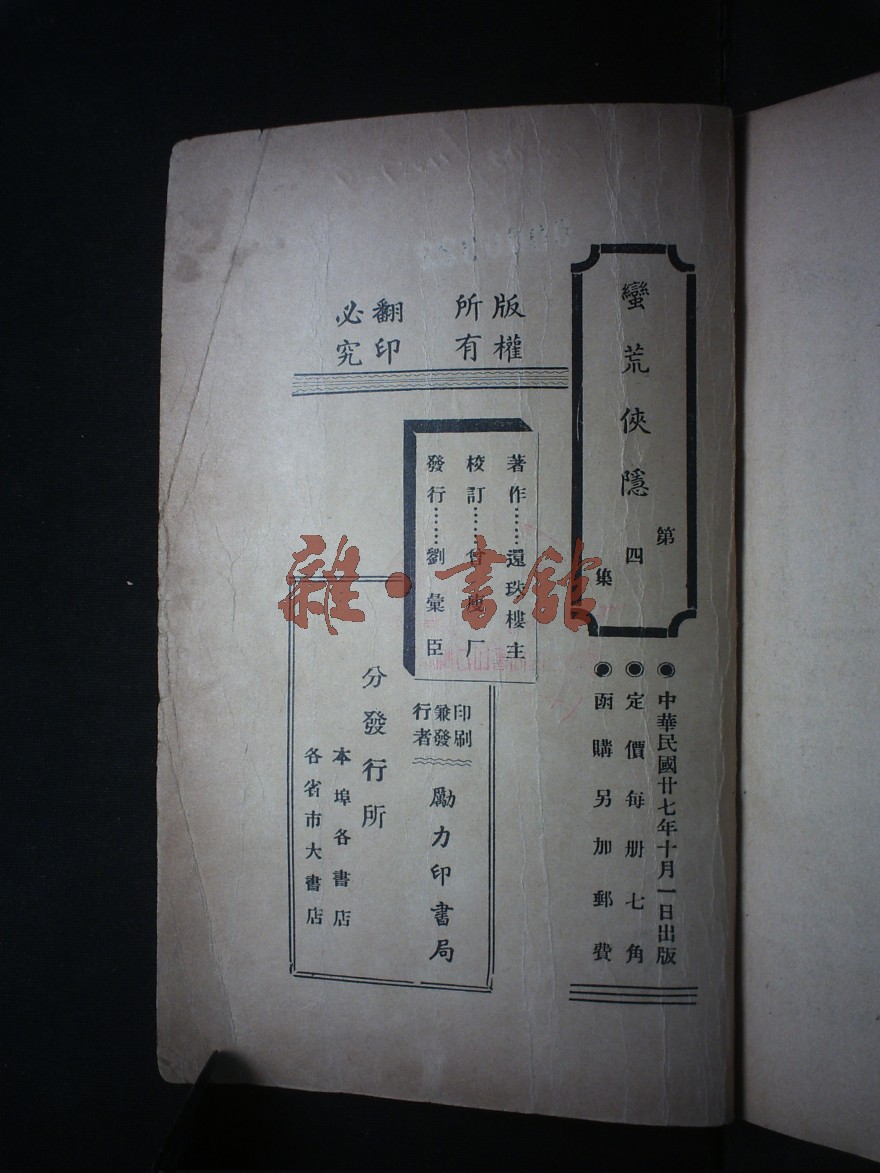 蠻荒俠隱
第四集
◉中華民國廿七年十月一日出版
◉定價每册七角
◉函購另加郵費
版權所有
翻印必究
著作……還珠樓主
校訂……曾 厂
發行……劉彙臣
印刷兼發行者
勵力印書局
分發行所
本埠各書店
各省市大書店
雜·書館